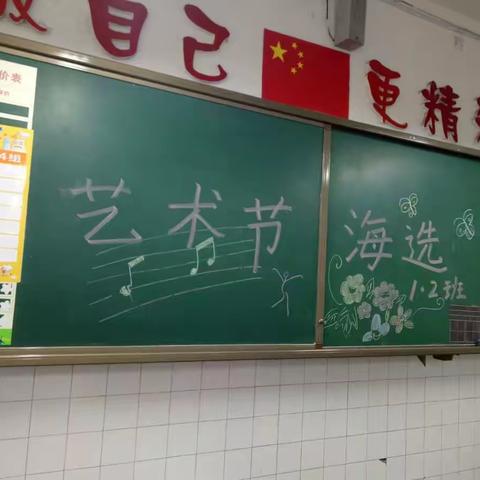 做自己 更精彩
价表
4组
艺术节 海选
1·2班